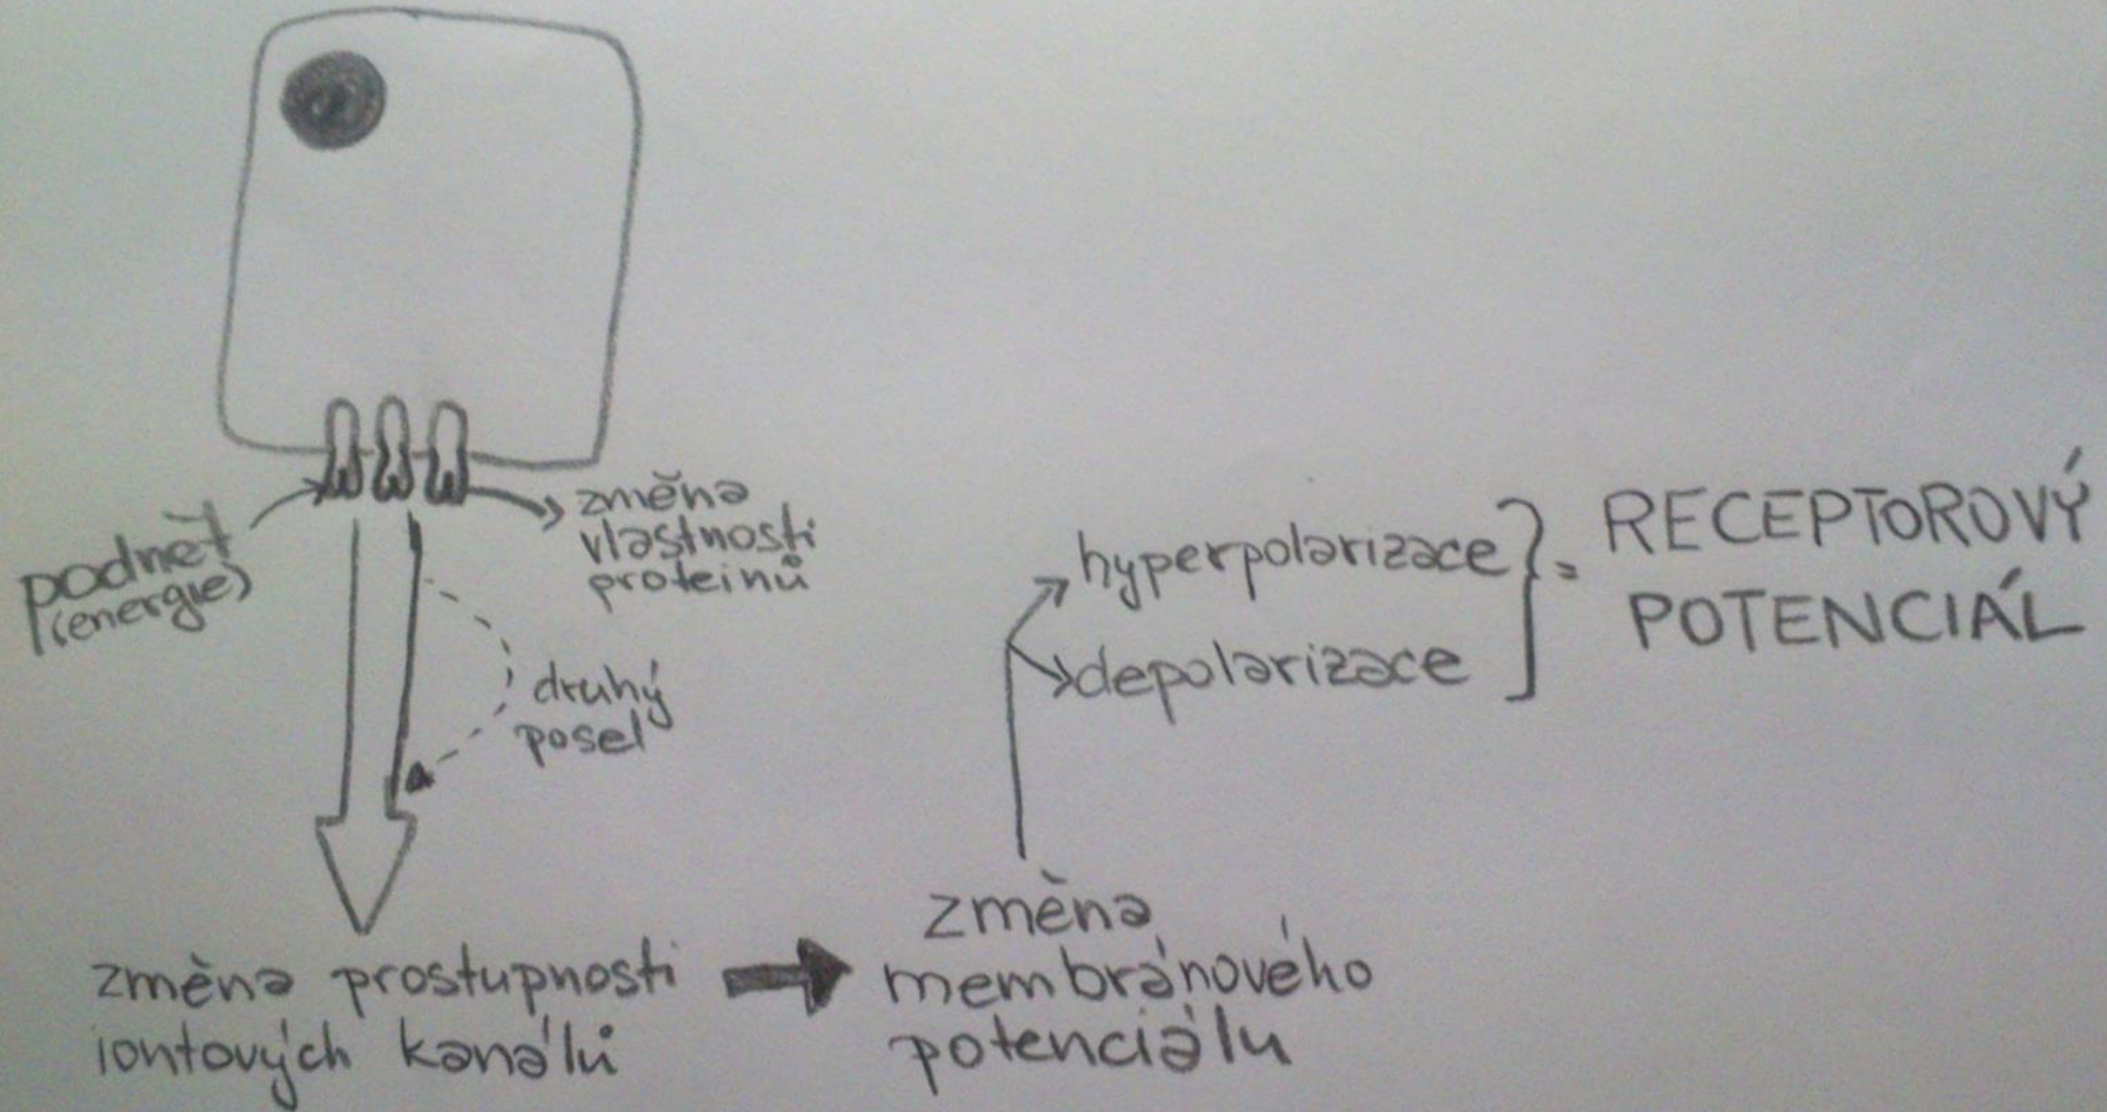 podnět
(energie)
změna
vlastnosti
proteinů
druhý
posel
změna prostupnosti
iontových kanálů
změna
membránového
potenciálu
hyperpolarizace
depolarizace
} = RECEPTOROVÝ
POTENCIÁL